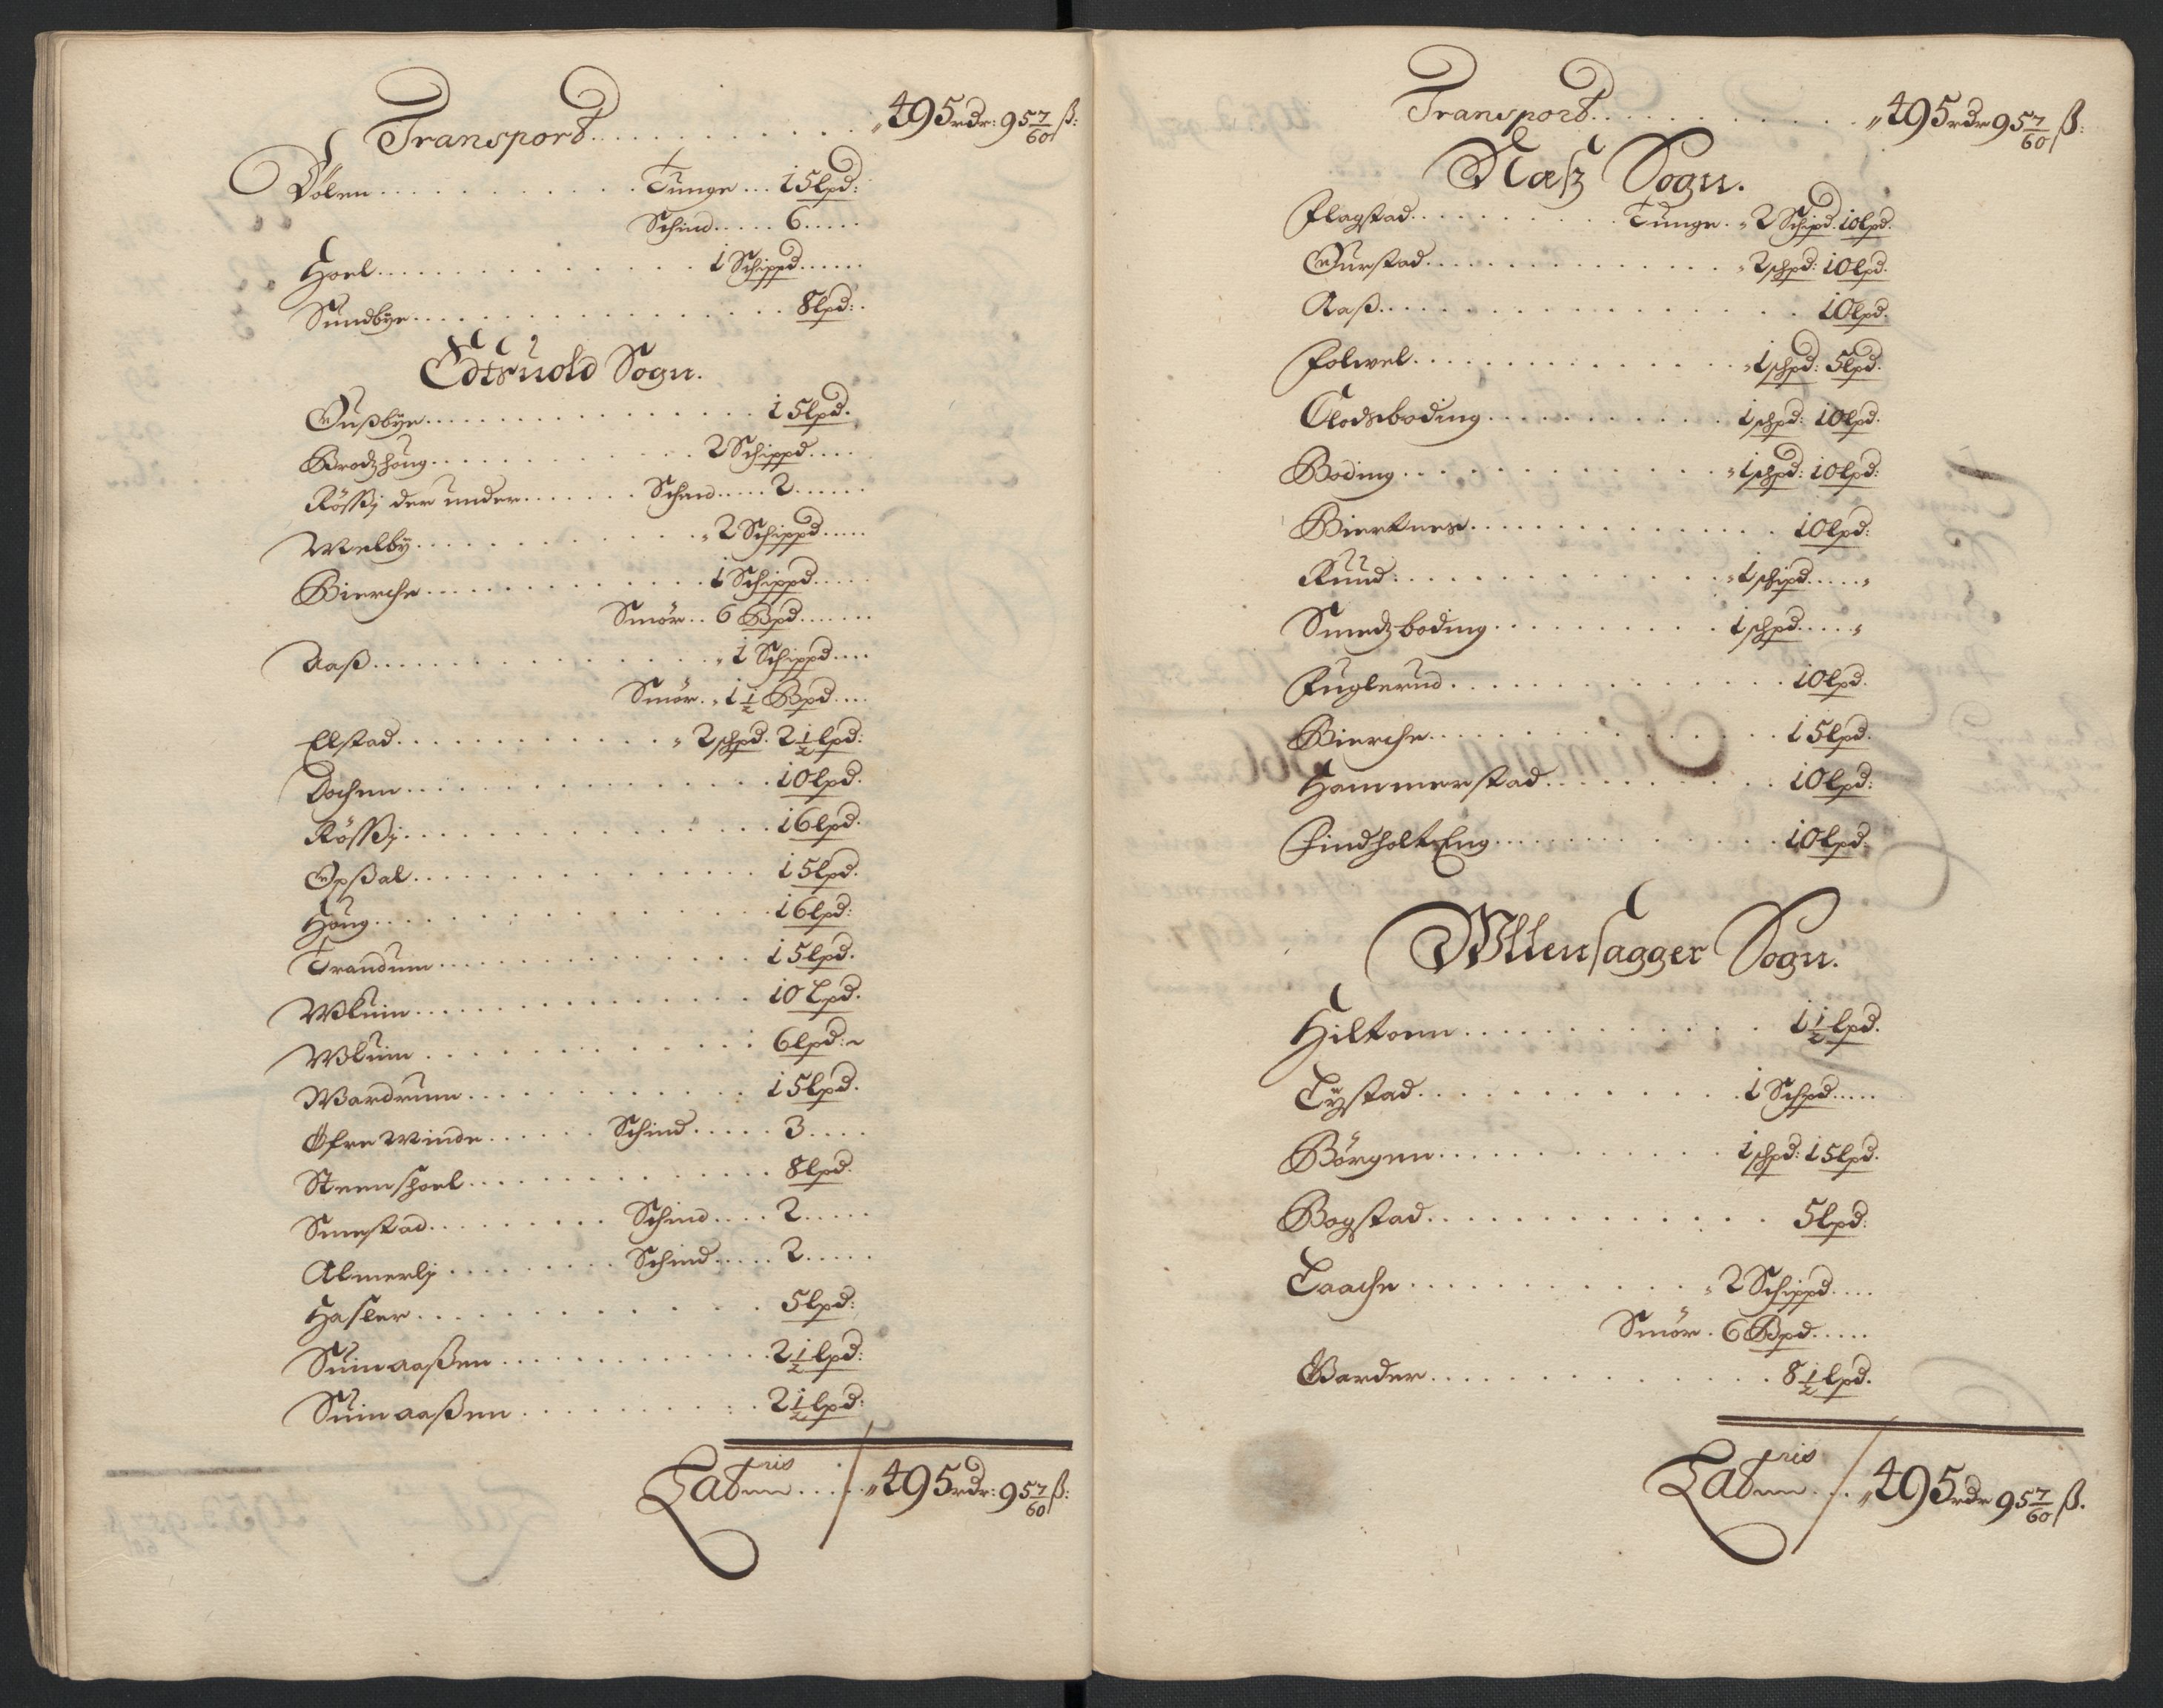 Transport . . . . . . . . . . „495rdr: 95 7/60 ß:
Dölen . . . . . . . . . Tunge . . . 15lpd:
Schind . . . . . 6 . . . . .
Hoel . . . . . . . . . . . . 1 Schippd . . . . . .
Sundbye . . . . . . . . . . . . . . . 8lpd:
Edtsuold Sogn.
Gußbye . . . . . . . . . . . . . . 15lpd.
Brodzhoug . . . . . . . . . . . 2 Schippd . . . .
Rößj der under . . . . . . Schind . . . . . 2 . . . . . .
Welby . . . . . . . . . . . . „ 2 Schippd . . . . .
Bierche . . . . . . . . . . . . 1 Schippd . . . . .
Smör . . 6 Bpd . . . . . . .
Aaß . . . . . . . . . . . . . . „ 1 Schippd . . . .
Smör . „ 1 1/2 Bpd . . . .
Elstad . . . . . . . . . . . „ 2 schpd. 2 1/2 lpd:
Dochen . . . . . . . . . . . . . . . 10lpd.
Rößj . . . . . . . . . . . . . . . 16lpd.
Opßal . . . . . . . . . . . . . . . 15lpd.
Houg . . . . . . . . . . . . . . . 16lpd:
Trandum . . . . . . . . . . . . . 15lpd.
Wluim . . . . . . . . . . . . . . 10 Lpd.
Wluim . . . . . . . . . . . . . 6lpd:
Wardrum . . . . . . . . . . . 15lpd.
Öfre Winde . . . . . . Schind . . . . . 3 . . . .
Steenschoel . . . . . . . . . . . . 8lpd.
Smestad . . . . . . . . Schind . . . . 2 . . . . .
Almerlj . . . . . . . . Schind . . . . . 2 . . . . .
Hasler . . . . . . . . . . . . . 5lpd:
Suinaaßen . . . . . . . . . . . . 2 1/2 lpd:
Suinaaßen . . . . . . . . . . . 2 1/2 lpd:
Latris . . . . . „495rdr: 95 7/60 ß:
Transport . . . . . . . . . . „495rdr 95 7/60 ß:
Næß Sogn.
Flagstad . . . . . . . . . Tunge . „ 2 Schipd. 10lpd.
Gurstad . . . . . . . . . . . . „ 2 schpd: 10lpd.
Aaß . . . . . . . . . . . . . . . . 10lpd.
Folwel . . . . . . . . . . . . . „ 1 schpd: 5lpd.
Clodsboding . . . . . . . . . 1 schpd: 10lpd.
Boding . . . . . . . . . . . . „ 1 schpd: 10lpd:
Biertnes . . . . . . . . . . . . . 10lpd:
Ruud . . . . . . . . . . . . . „ 1 schipd . . . . . „
Smedzboding . . . . . . . . . 1 schpd . . . . . „
Fuglerud . . . . . . . . . . . . . 10lpd.
Bierche . . . . . . . . . . . . . . 15lpd.
Hammerstad . . . . . . . . . . 10lpd:
Findholt Eng . . . . . . . . . . . 10lpd.
Wllensagger Sogn.
Hiltoen . . . . . . . . . . . . 1 1/2 lpd.
Lÿstad . . . . . . . . . . . . . 1 Schpd . . . . .
Börgen . . . . . . . . . . . . 1 schpd: 15lpd.
Bogstad . . . . . . . . . . . . . 5lpd:
Laache . . . . . . . . . . . . „ 2 Schippd . . . .
Smör . 6 Bpd . . . . .
Garder . . . . . . . . . . . . . 8 1/2 lpd.
Latris . . . „495rdr 95 7/60 ß.